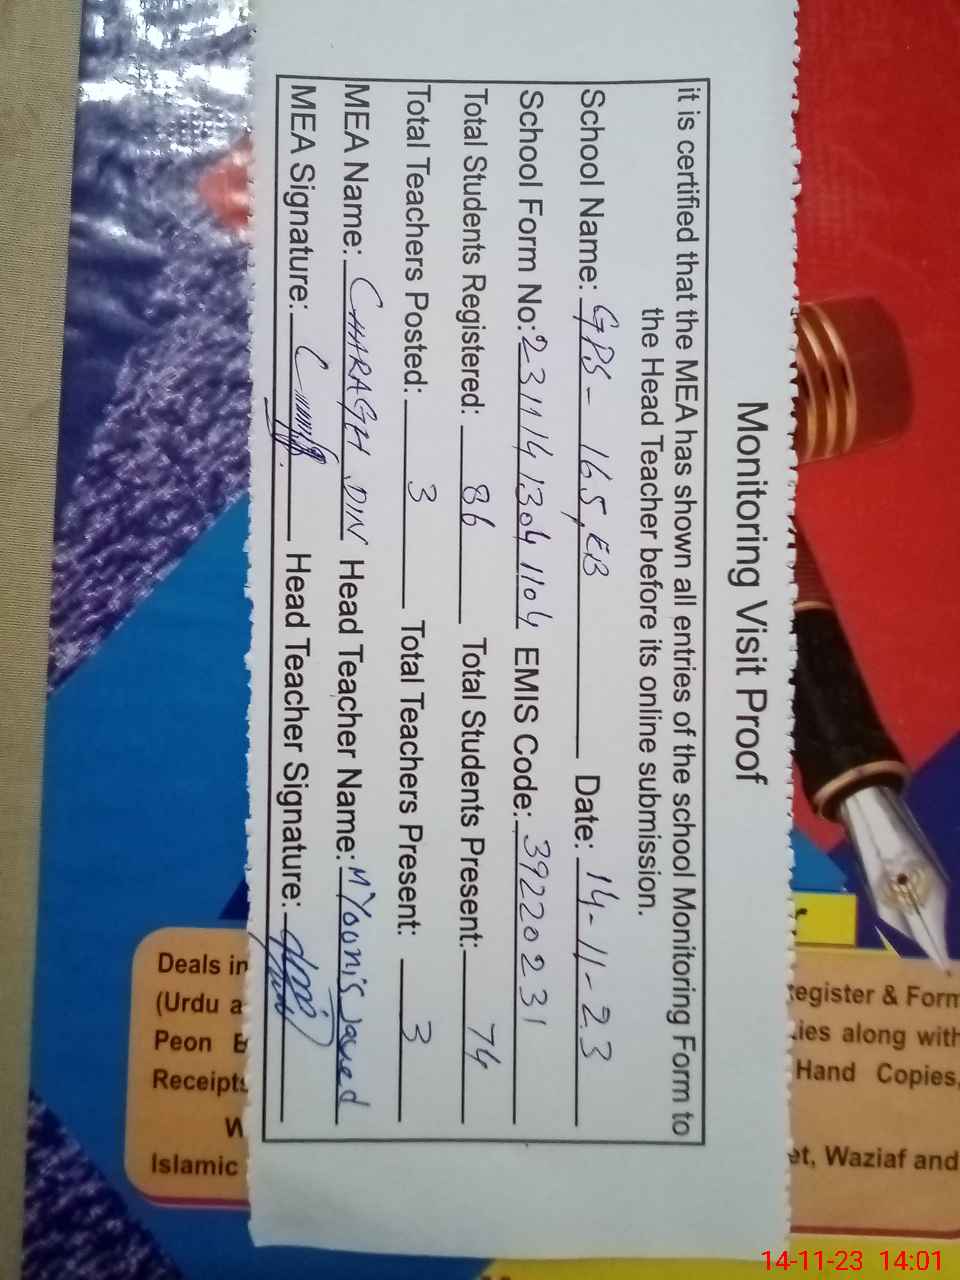 Monitoring Visit Proof
it is certified that the MEA has shown all entries of the school Monitoring Form to
the Head Teacher before its online submission.
School Name: GPS- 165, EB Date: 14-11-23
School Form No: 23111413041104 EMIS Code: 39220231
Total Students Registered: 86 Total Students Present: 74
Total Teachers Posted: 3 Total Teachers Present: 3
MEA Name: CHARAGH DIN Head Teacher Name: M Younis Javed
MEA Signature: Head Teacher Signature:
Deals in
(Urdu a
Peon &
Receipts
W
Islamic
register & Form
ies along with
Hand Copies,
et, Waziaf and
14-11-23 14:01